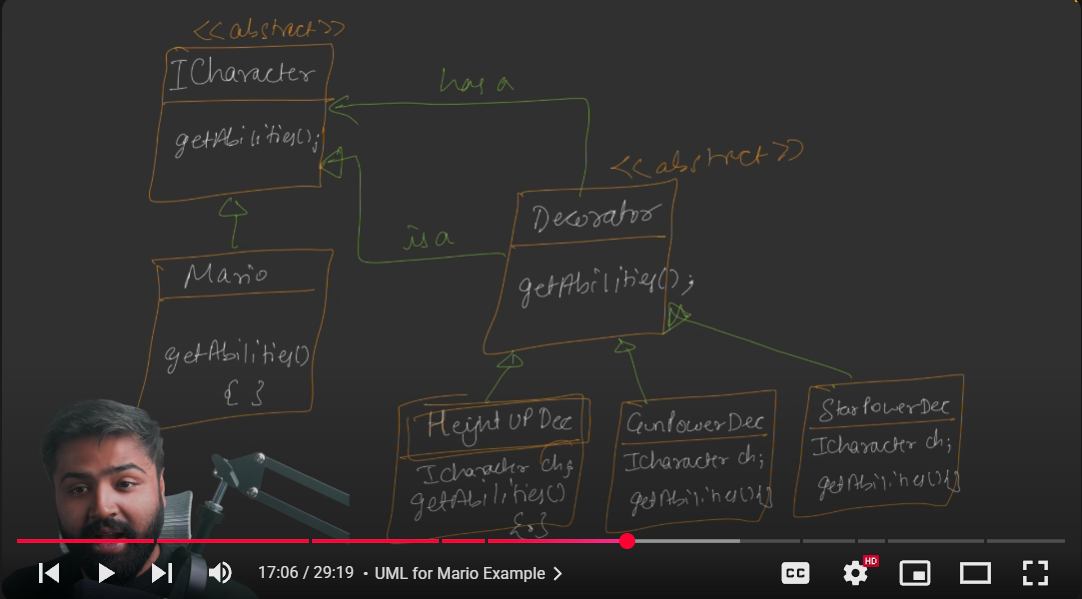 <<abstract>>
ICharacter
getAbilities();
has a
<<abstract>>
Decorator
getAbilities();
is a
Mario
getAbilities()
{ }
HeightUPDec
ICharacter ch;
getAbilities()
{ }
GunPowerDec
ICharacter ch;
getAbilities(){}
StarPowerDec
ICharacter ch;
getAbilities(){}
17:06 / 29:19 • UML for Mario Example
CC
HD